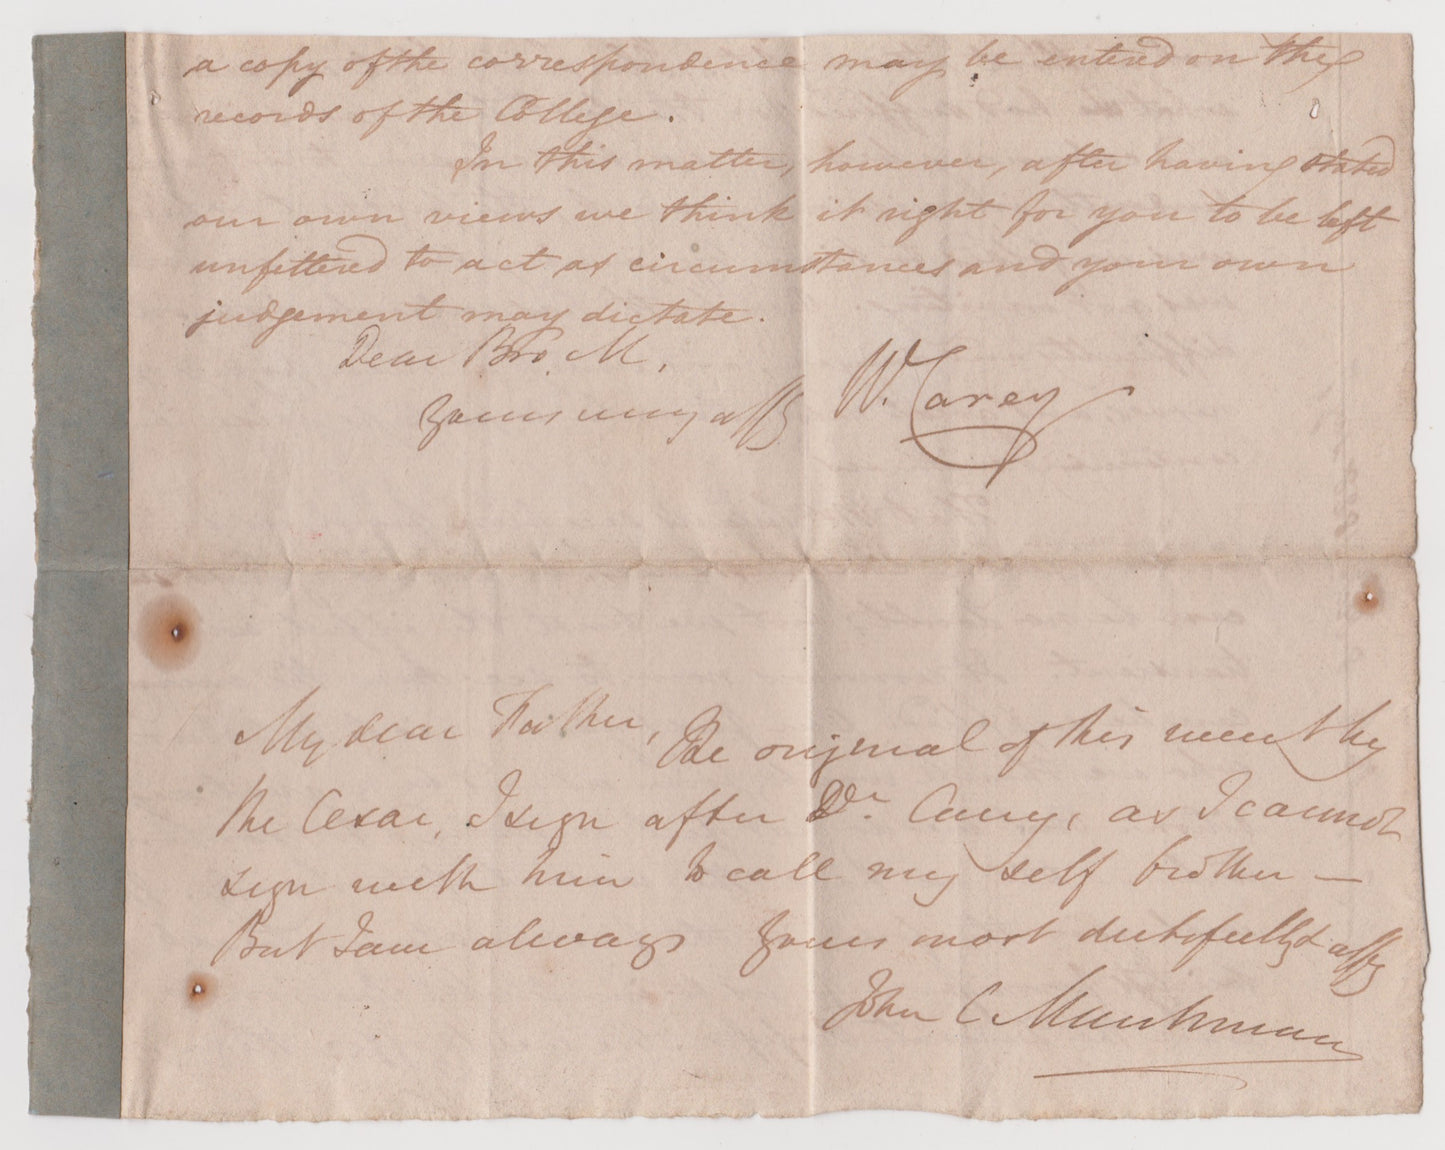 a copy of the correspondence may be entered on the
records of the College.
In this matter, however, after having stated
our own views we think it right for you to be left
unfettered to act as circumstances and your own
judgement may dictate.
Dear Bro. M,
yours very affy W. Carey
My dear Father, The original of this went by
the Cesar, I sign after Dr. Carey, as I cannot
sign with him to call my self brother —
But I am always yours most dutifully & affy
John C Marshman